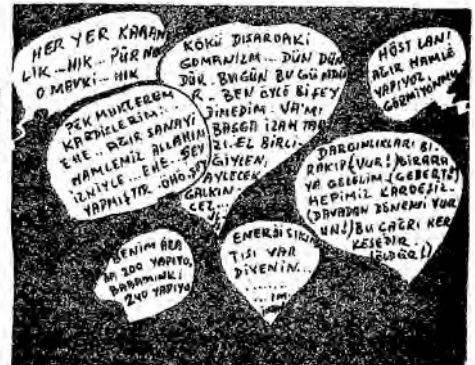 HER YER KARAN
LIK...HIK...PÜR NU
O MEVKİ...HIK
KÖKÜ DIŞARDAKİ
GOMANİZM...DÜN DÜN
DÜR. BUGÜN BUGÜNDÜ
R...BEN ÖYLE Bİ ŞEY
DİMEDİM. VA'MI
BAŞGA İZAH TAR
ZI. EL BİRLİ
GİYLEN,
AYLECEK
GALKIN-
CEZ
HÖST LAN!
AĞIR HAMLE
YAPIYOZ,
GÖRMİYONMU
PEK MUHTEREM
KARDİŞLERİM...
EHE...AĞIR SANAYİ
HAMLEMİZ ALLAHIN
İZNİYLE...EHE...ŞEY
YAPMIŞTIR..ÖHÖ.ŞEY
DARGINLIKLARI BI-
RAKIP (VUR!) BİRARA
YA GELELİM.(GEBERT!)
HEPİMİZ KARDEŞİZ.
(DAVADAN DÖNENİ VUR
UN!) BU ÇAĞRI HER
KESEDİR.
(ÖLDÜR!)
BENİM ARA
BA 200 YAPIYO,
BABAMINKİ
240 YAPIYO
ENERJİ SIKIN
TISI VAR
DİYENİN...